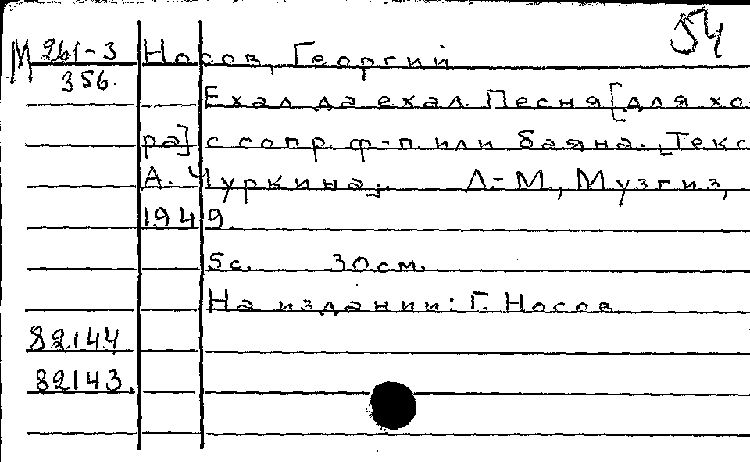 54
М 261-3 Носов, Георгий
356.
Ехал да ехал. Песня [для хо
ра] с сопр. ф-п. или баяна. Текс
А. Чуркина. Л-М, Музгиз,
1949.
5с. 30см.
На издании: Г. Носов
82144
82143.